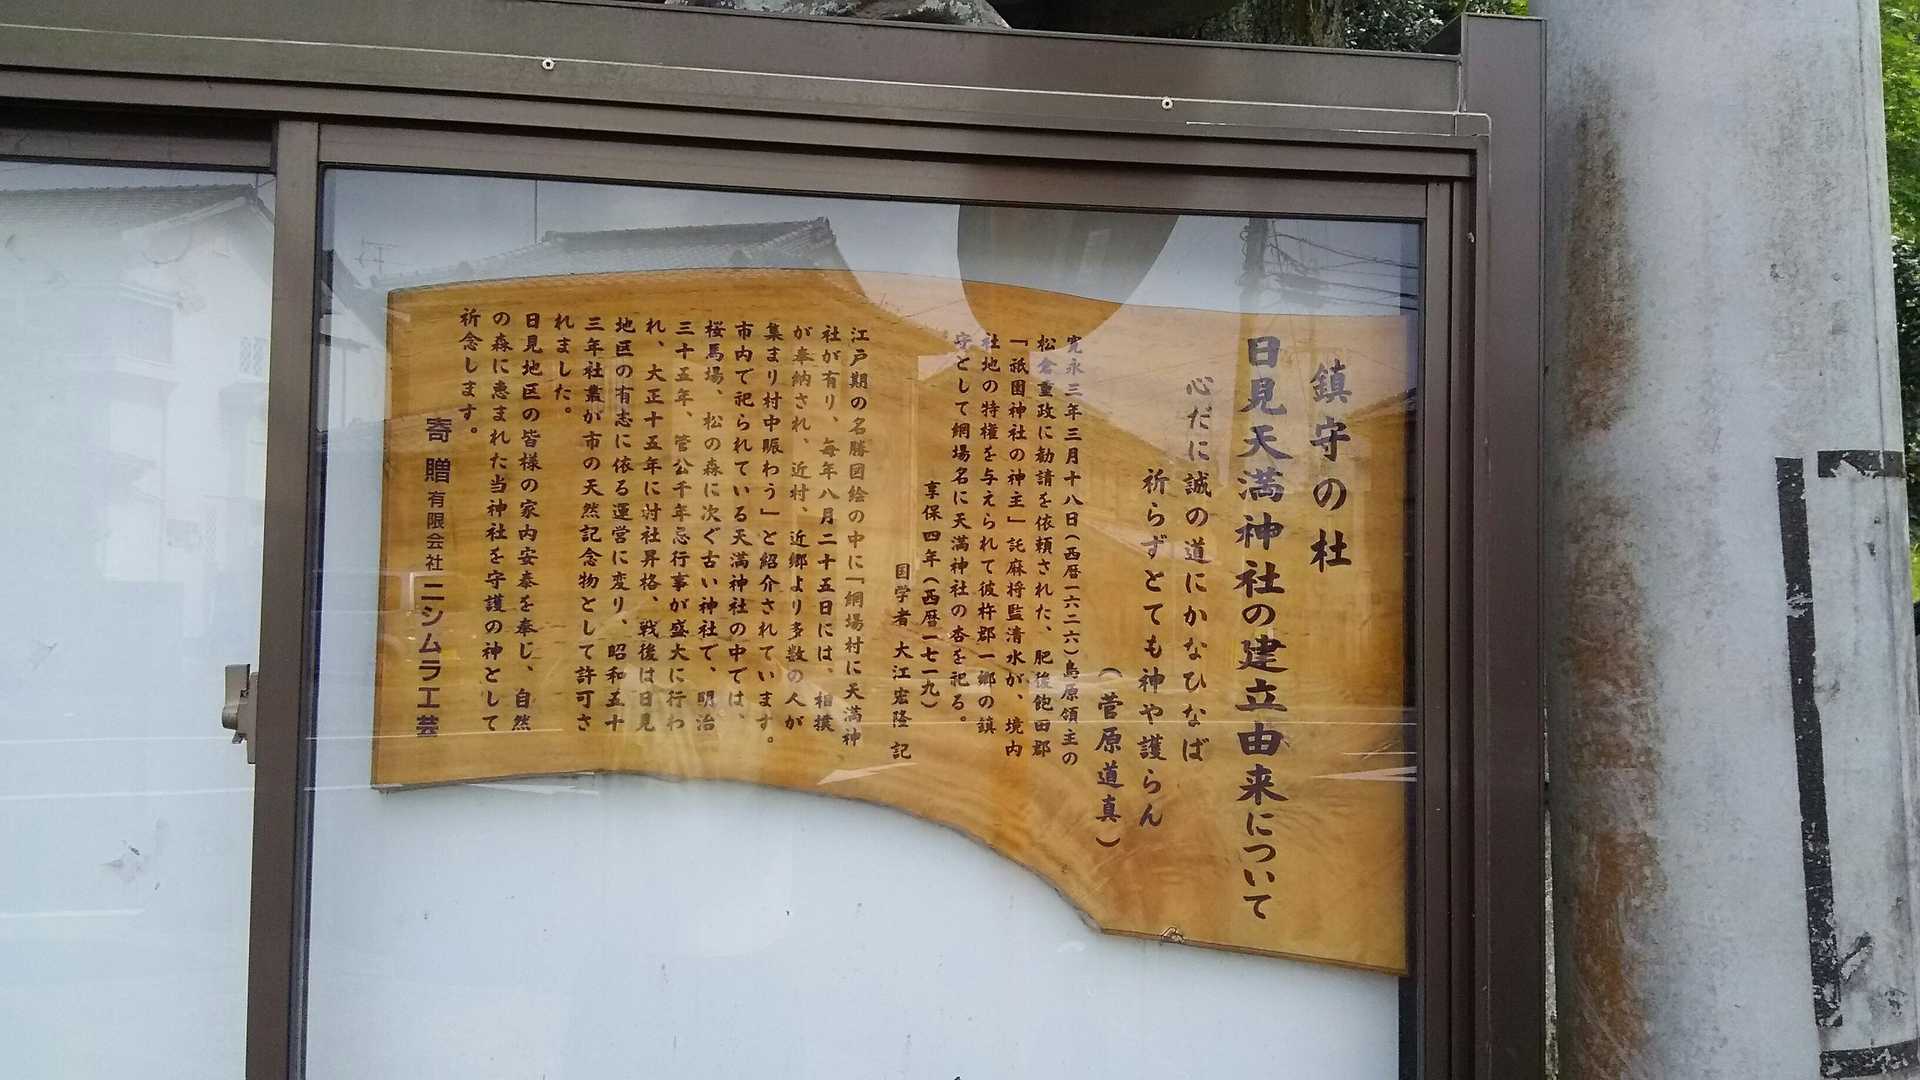 鎮守の杜
日見天満神社の建立由来について
心だに誠の道にかなひなば
祈らずとても神や護らん
(菅原道真)
寛永三年三月十八日(西暦一六二六)島原領主の
松倉重政に勧請を依頼された、肥後飽田郡
「祇園神社の神主」託麻将監清水が、境内
社地の特権を与えられて彼杵郡一郷の鎮
守として網場名に天満神社の杏を祀る。
享保四年(西暦一七一九)
国学者 大江宏隆 記
江戸期の名勝図絵の中に「網場村に天満神
社が有り、毎年八月二十五日には、相撲
が奉納され、近村、近郷より多数の人が
集まり村中賑わう」と紹介されています。
市内で祀られている天満神社の中では、
桜馬場、松の森に次ぐ古い神社で、明治
三十五年、菅公千年忌行事が盛大に行わ
れ、大正十五年に村社昇格、戦後は日見
地区の有志に依る運営に変り、昭和五十
三年社叢が市の天然記念物として許可さ
れました。
日見地区の皆様の家内安泰を奉じ、自然
の森に恵まれた当神社を守護の神として
祈念します。
寄贈 有限会社 ニシムラ工芸